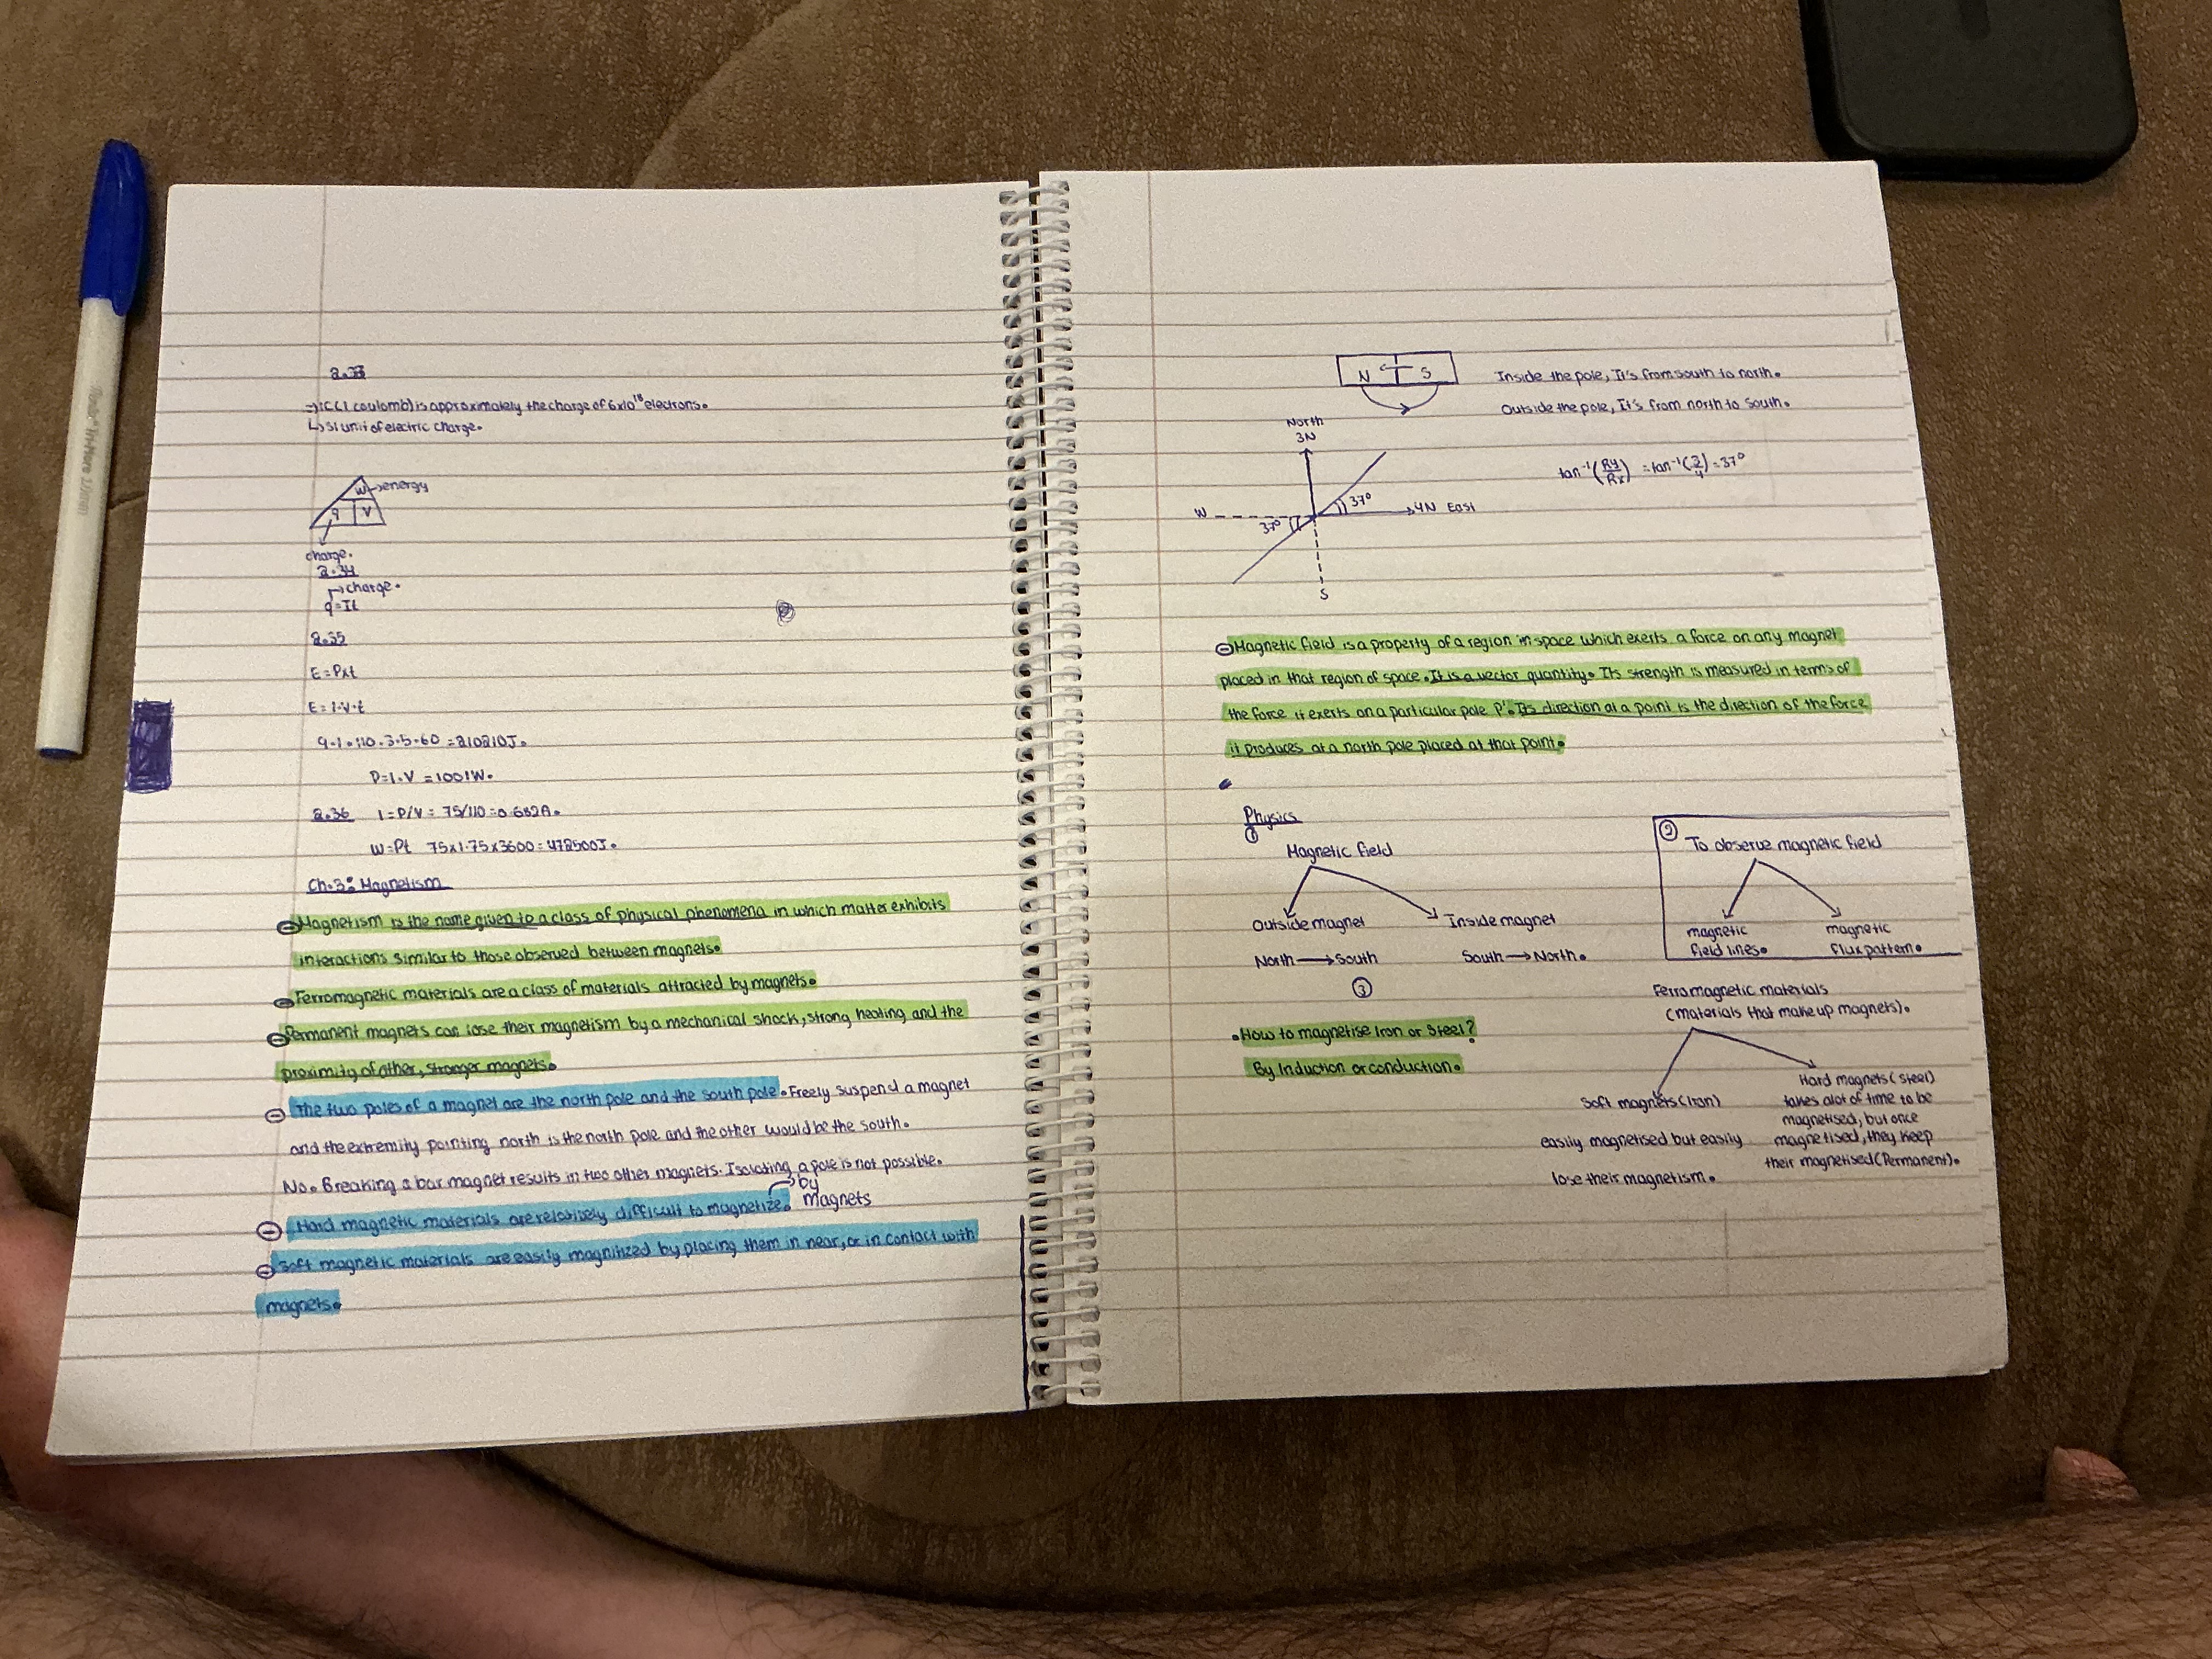 2.33
⇒1C(1 coulomb) is approximately the charge of 6x10¹⁸ electrons.
↳SI unit of electric charge.
W→energy
q V
charge.
2.34
→charge.
q=It
2.35
E=Pxt
E=I·V·t
9.1·110·3.5·60=210210J.
P=I·V=1001W.
2.36 I=P/V=75/110=0.682A.
W=Pt 75x1.75x3600=472500J.
Ch.3: Magnetism
Magnetism is the name given to a class of physical phenomena in which matter exhibits
interactions similar to those observed between magnets.
Ferromagnetic materials are a class of materials attracted by magnets.
Permanent magnets can lose their magnetism by a mechanical shock, strong heating and the
proximity of other, stronger magnets.
The two poles of a magnet are the north pole and the south pole. Freely suspend a magnet
and the extremity pointing north is the north pole and the other would be the south.
No. Breaking a bar magnet results in two other magnets. Isolating a pole is not possible.
Hard magnetic materials are relatively difficult to magnetize. →by magnets
Soft magnetic materials are easily magnitized by placing them in near, or in contact with
magnets.
N S
Inside the pole, It's from south to north.
Outside the pole, It's from north to south.
North
3N
tan⁻¹(Ry/Rx) = tan⁻¹(3/4)=37°
37°
W 4N East
37°
S
Magnetic field is a property of a region in space which exerts a force on any magnet
placed in that region of space. It is a vector quantity. Its strength is measured in terms of
the force it exerts on a particular pole P'. Its direction at a point is the direction of the force
it produces at a north pole placed at that point.
Physics
① Magnetic field
Outside magnet Inside magnet
North→South South→North.
② To observe magnetic field
magnetic field lines. magnetic flux pattern.
③
.How to magnetise Iron or Steel?
By Induction or conduction.
Ferromagnetic materials
(materials that make up magnets).
Soft magnets(Iron)
easily magnetised but easily
lose their magnetism.
Hard magnets(Steel)
takes alot of time to be
magnetised, but once
magnetised, they keep
their magnetised(Permanent).